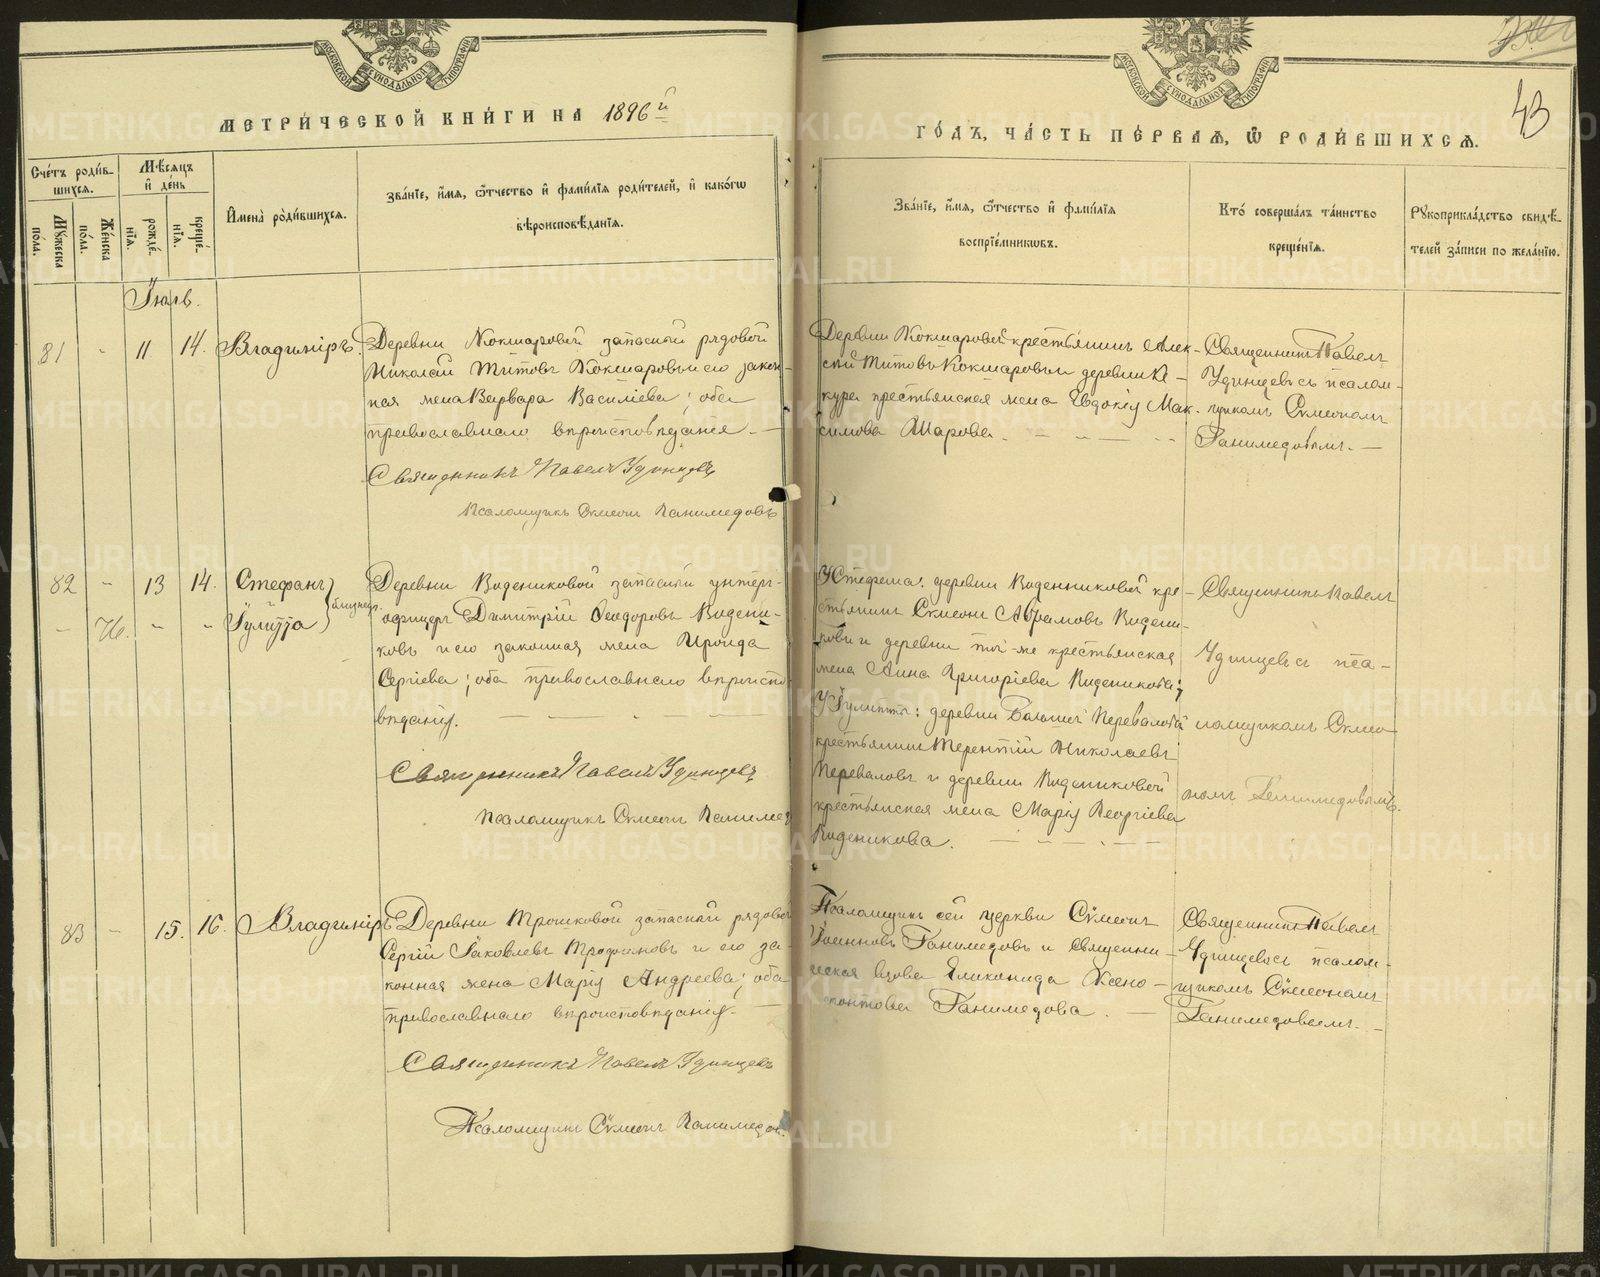 МОСКОВСКОЙ СУНОДАЛЬНОЙ ТИПОГРАФІИ
МЕТРИ́ЧЕСКОЙ КНИ́ГИ НА 1896 й
Сче́тъ роди́в-
шихся.
Мѣ́сяцъ
и҆ де́нь
Мꙋ́жеска
по́ла.
Же́нска
по́ла.
рожде́-
нїѧ.
креще́-
нїѧ.
И҆мена̀ роди́вшихся.
Зва́нїе, и҆́мѧ, ѻ҆́тчество и҆ фами́лїѧ роди́телей, и҆ како́гѡ
вѣроисповѣ́данїѧ.
Іюль.
81 - 11 14. Владиміръ.
Деревни Кокшаровой запасный рядовой
Николай Титовъ Кокшаровъ и его закон-
ная жена Варвара Василіева; оба
православнаго вѣроисповѣданія. —
Священникъ Павелъ Удинцевъ
Псаломщикъ Сѵмеонъ Ганимедовъ
82 - 13 14. Стефанъ
- - - Іулитта
близнецы
Деревни Водениковой запасный унтеръ-
офицеръ Димитрій Ѳеодоровъ Водени-
ковъ и его законная жена Ироида
Сергіева; оба православнаго вѣроиспо-
вѣданія. —
Священникъ Павелъ Удинцевъ
Псаломщикъ Сѵмеонъ
83 - 15. 16. Владиміръ
Деревни Трошковой запасный рядовой
Сергій Іаковлевъ Трофимовъ и его за-
конная жена Марія Андреева; оба
православнаго вѣроисповѣданія. —
Священникъ Павелъ Удинцевъ
Псаломщикъ Сѵмеонъ
МОСКОВСКОЙ СУНОДАЛЬНОЙ ТИПОГРАФІИ
43
ГО́ДЪ, ЧА́СТЬ ПЕ́РВАѦ, Ѡ҆ РОДИ́ВШИХСѦ.
Зва́нїе, и҆́мѧ, ѻ҆́тчество и҆ фами́лїѧ
воспрїе́мникѡвъ.
Кто̀ соверша́лъ та́инство
креще́нїѧ.
Рꙋкоприкла́дство свидѣ́-
телей за́писи по жела́нїю.
Деревни Кокшаровой крестьянинъ Алек-
сѣй Титовъ Кокшаровъ и деревни
крестьянская жена Евдокія Мак-
симова Шарова. —
Священникъ Павелъ
Удинцевъ съ псалом-
щикомъ Сѵмеономъ
Ганимедовымъ. —
У Стефана: деревни Водениковой кре-
стьянинъ Сѵмеонъ Абрамовъ Водени-
ковъ и деревни той-же крестьянская
жена Анна Григоріева Воденикова;
У Іулитты: деревни Большой Переваловой
крестьянинъ Терентій Николаевъ
Переваловъ и деревни Водениковой
крестьянская жена Марія Георгіева
Воденикова. —
Священникъ Павелъ
Удинцевъ съ пса-
ломщикомъ Сѵмео-
номъ Ганимедовымъ.
Псаломщикъ сей церкви Сѵмеонъ
Іоанновъ Ганимедовъ и священни-
ческая вдова Еликонида Ксено-
фонтова Ганимедова. —
Священникъ Павелъ
Удинцевъ съ псалом-
щикомъ Сѵмеономъ
Ганимедовымъ. —
METRIKI.GASO-URAL.RU